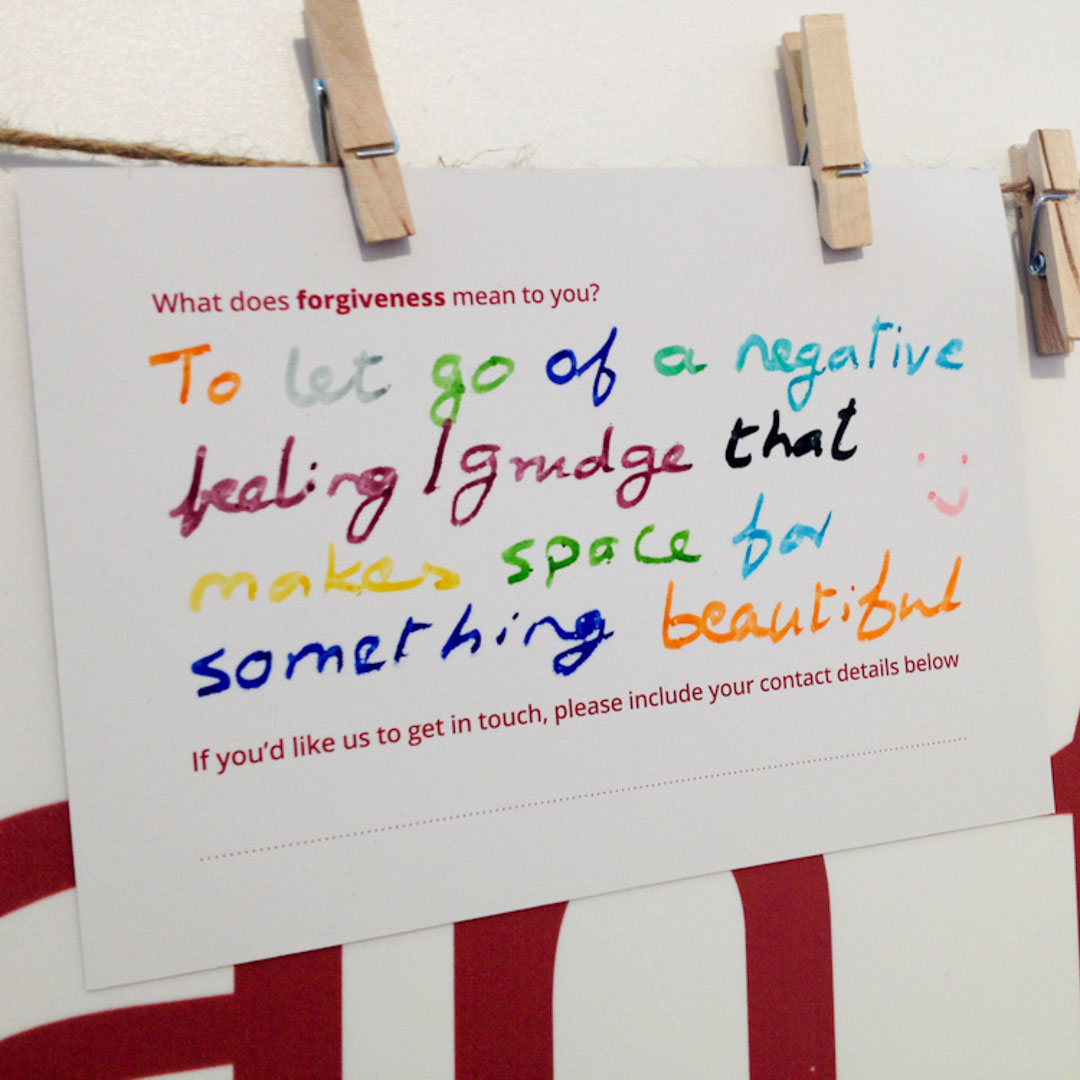 What does forgiveness mean to you?
To let go of a negative
feeling / grudge that
makes space for
something beautiful
If you'd like us to get in touch, please include your contact details below